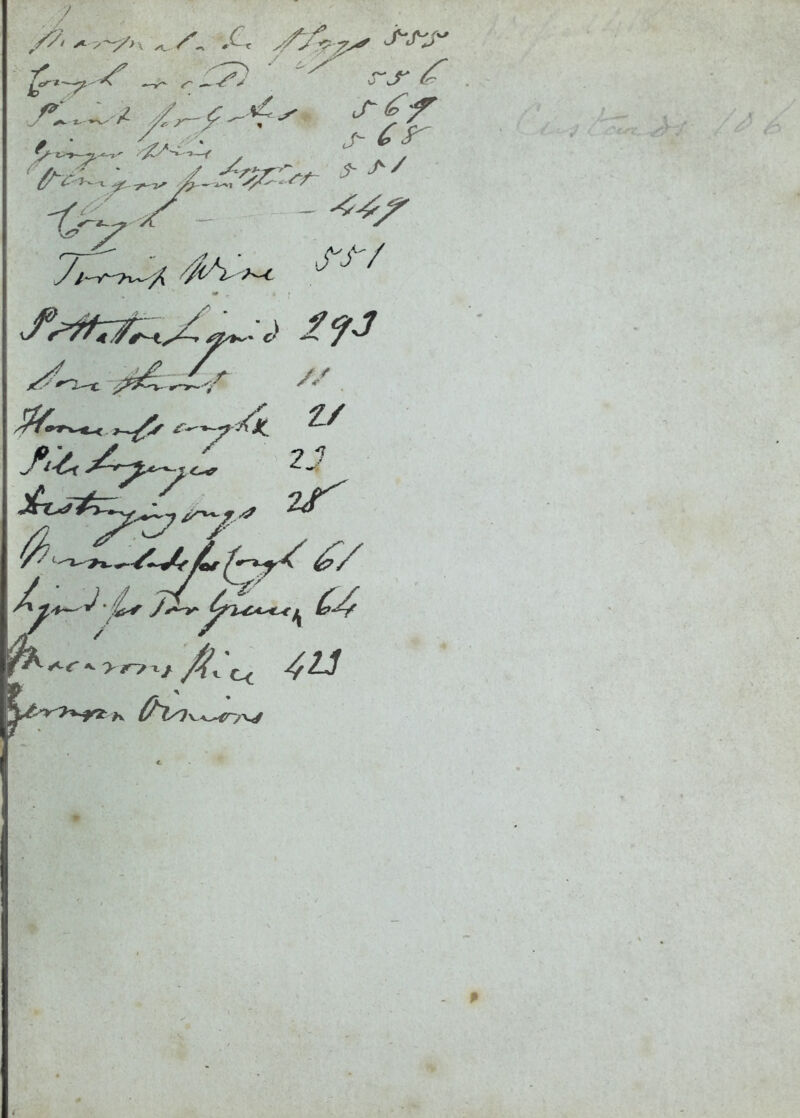 Marmalade of Eggs 555
Cough or cold 556
Paint for Gates 569
Ginger Wine 568
Vinigar from 551
Cough 449
Turnip Wine 551
Pottatoe Liquid 293
Sore throat 11
Hoarseness cough 21
Pile Lozenges 23
Destroying bugs 28
Marmalade for Cough 61
Liquid for Tar 64
Macarons Rice 423
German
Custards 106